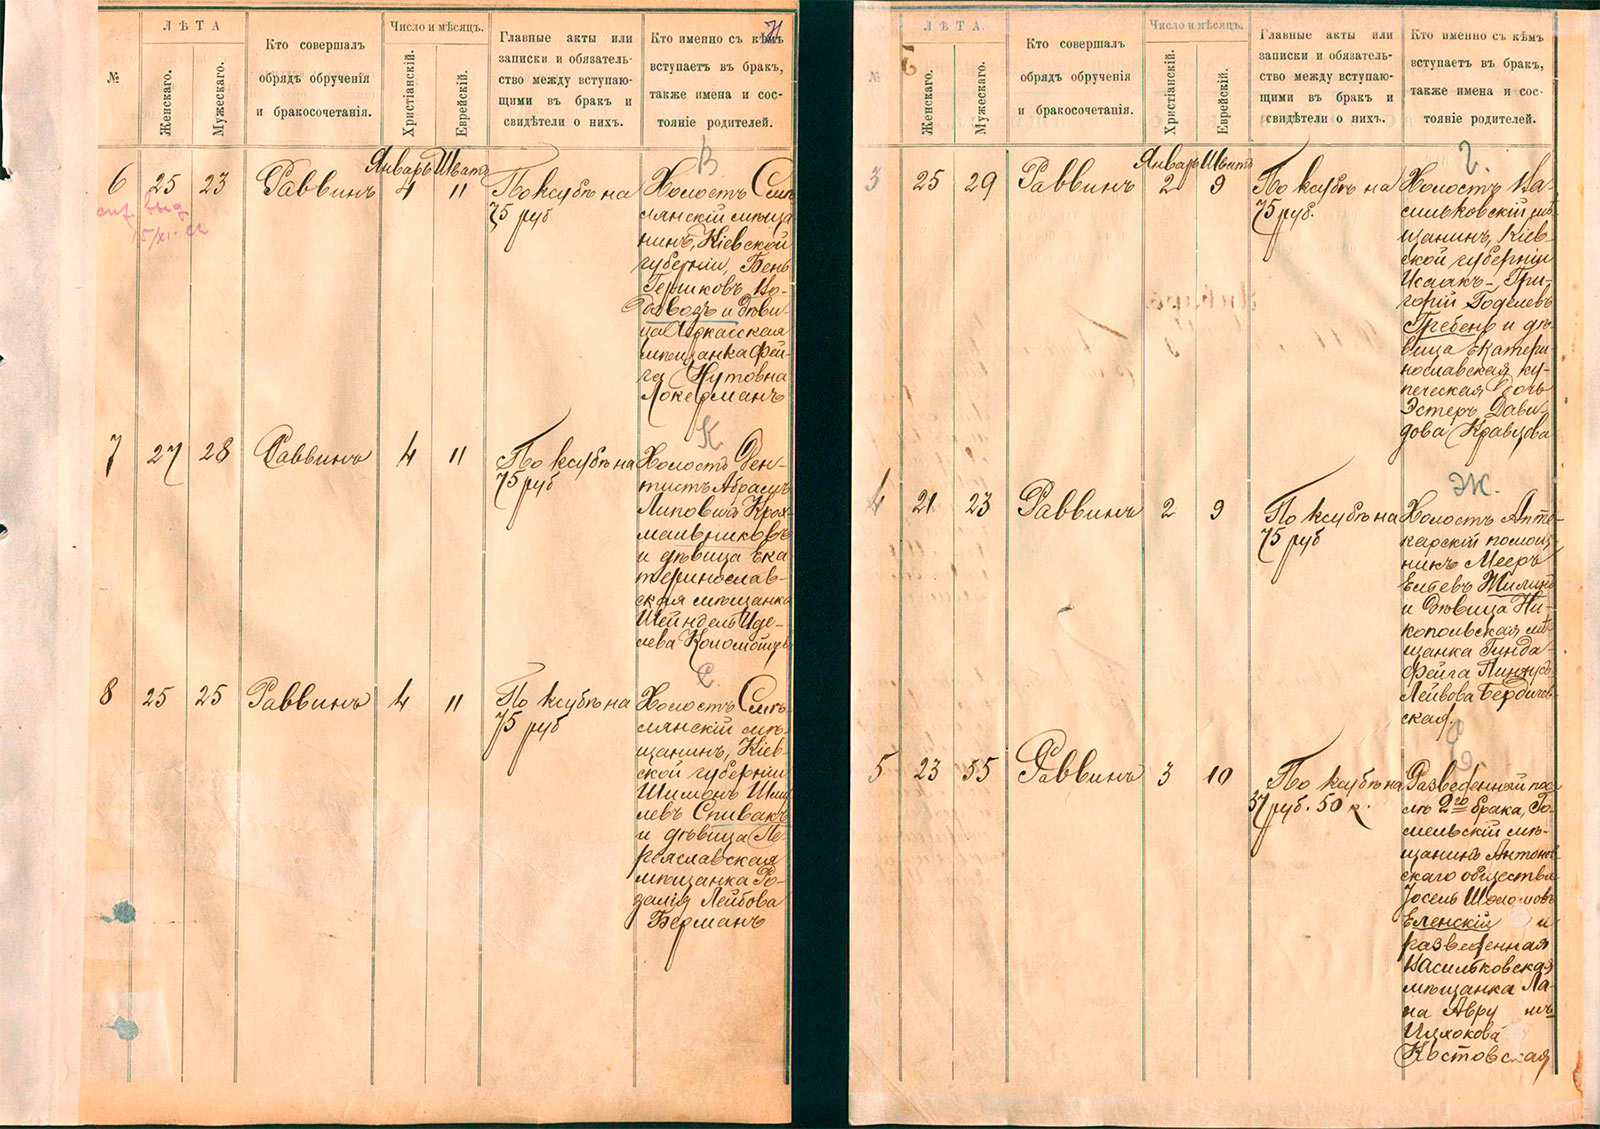 71
№
ЛѢТА
Женскаго.
Мужескаго.
Кто совершалъ
обрядъ обрученія
и бракосочетанія.
Число и мѣсяцъ.
Христіанскій.
Еврейскій.
Главные акты или
записки и обязатель-
ство между вступаю-
щими въ бракъ и
свидѣтели о нихъ.
Кто именно съ кѣмъ
вступаетъ въ бракъ,
также имена и сос-
тояніе родителей.
В
Январь Шватъ
6 25 23 Раввинъ 4 11
По ксубѣ на
75 руб
Холостъ Смѣ-
лянскій мѣща
нинъ, Кіевской
губерніи, Бень
Гершковъ Во-
довозъ и дѣви-
ца Черкасская
мѣщанка Фей-
га Нутовна
Локерманъ
выд
К
7 27 28 Раввинъ 4 11
По ксубѣ на
75 руб
Холостъ Ден-
тистъ Абрамъ
Липовичъ Крах-
мальниковъ
и дѣвица Ека
теринослав-
ская мѣщанка
Шейндель Иде-
лева Коломойцев
С.
8 25 25 Раввинъ 4 11
По ксубѣ на
75 руб
Холостъ Смѣ-
лянскій мѣ-
щанинъ, Кіев-
ской губерніи
Шимонъ
левъ Спивакъ
и дѣвица Пе-
реяславская
мѣщанка Ро-
залія Лейбова
Берманъ
№
ЛѢТА.
Женскаго.
Мужескаго.
Кто совершалъ
обрядъ обрученія
и бракосочетанія.
Число и мѣсяцъ.
Христіанскій.
Еврейскій.
Главные акты или
записки и обязатель-
ство между вступаю-
щими въ бракъ и
свидѣтели о нихъ.
Кто именно съ кѣмъ
вступаетъ въ бракъ,
также имена и сос-
тояніе родителей.
Г.
Январь Шватъ
3 25 29 Раввинъ 2 9
По ксубѣ на
75 руб.
Холостъ Ва-
сильковскій мѣ
щанинъ, Кіев-
ской губерніи
Исаакъ-Гри-
горій Годелевъ
Гребень и дѣ-
вица Екатери-
нославская ку-
печеская дочь
Эстеръ Дави-
дова Кравцова
Ж.
4 21 23 Раввинъ 2 9
По ксубѣ на
75 руб
Холостъ Апте-
карскій помощ
никъ Мееръ
Елевъ
и дѣвица Ни-
копольская мѣ-
щанка Гинда-
Фейга Пинхусъ-
Лейбова Бердичев-
ская.
Е.
5 23 55 Раввинъ 3 10
По ксубѣ на
37 руб. 50 к.
Разведенный пос
лѣ 2го брака, Го-
мельскій мѣ-
щанинъ Антонов
скаго общества
Іосель Шоломовъ
Еленскій и
разведенная
Васильковская
мѣщанка Ха-
на
Ицхокова
Костовская